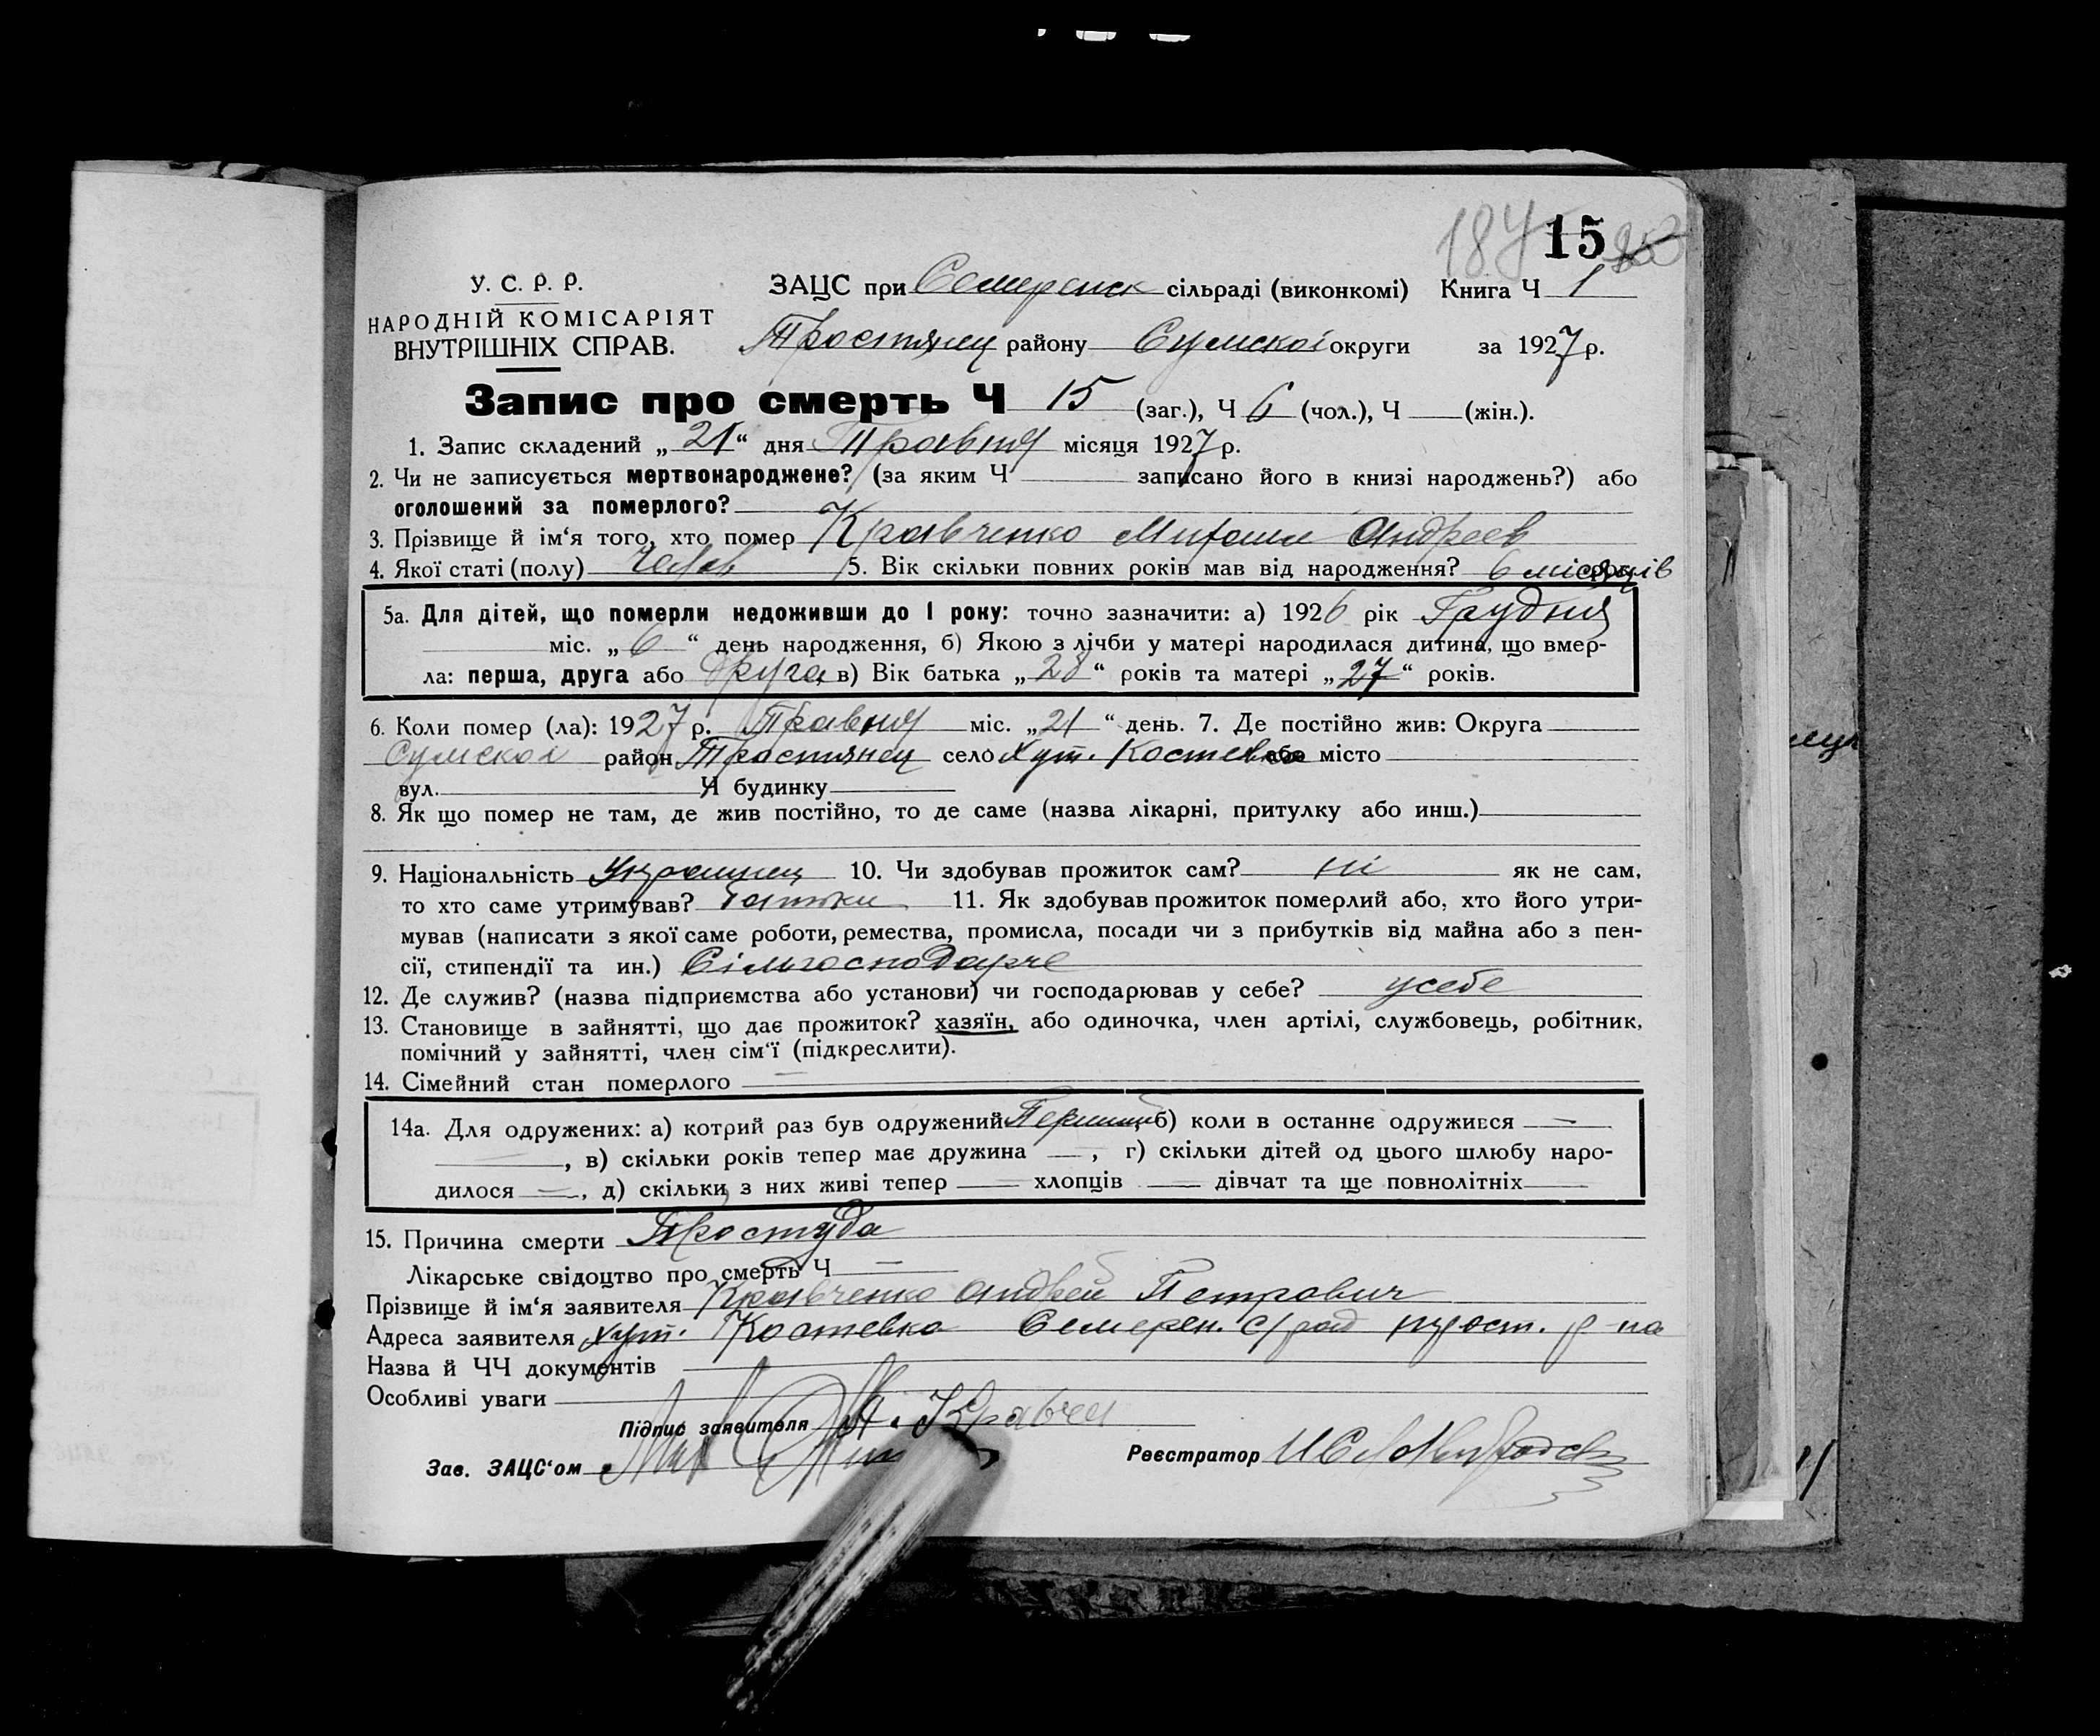 184 15
У. С. Р. Р.
НАРОДНІЙ КОМІСАРІЯТ
ВНУТРІШНІХ СПРАВ.
ЗАЦС при Семеренск сільраді (виконкомі) Книга Ч 1
Тростянец району Сумскої округи за 1927 р.
Запис про смерть Ч 15 (заг.), Ч 6 (чол.), Ч (жін.).
1. Запис складений „21“ дня Травня місяця 1927 р.
2. Чи не записується мертвонароджене? (за яким Ч записано його в книзі народжень?) або
оголошений за померлого?
3. Прізвище й ім‘я того, хто помер Кравченко Андреев
4. Якої статі (полу) Челов 5. Вік скільки повних років мав від народження? 6 місяців
5а. Для дітей, що померли недоживши до 1 року: точно зазначити: а) 1926 рік Грудня
міс. „6“ день народження, б) Якою з лічби у матері народилася дитина, що вмер-
ла: перша, друга або друга в) Вік батька „28“ років та матері „27“ років.
6. Коли помер (ла): 1927 р. Травня міс. „21“ день. 7. Де постійно жив: Округа
Сумскої район Тростянец село Хут. Костевка або місто
вул. Ч будинку
8. Як що помер не там, де жив постійно, то де саме (назва лікарні, притулку або инш.)
9. Національність Украинец 10. Чи здобував прожиток сам? ні як не сам,
то хто саме утримував? Батьки 11. Як здобував прожиток померлий або, хто його утри-
мував (написати з якої саме роботи, ремества, промисла, посади чи з прибутків від майна або з пен-
сії, стипендії та ин.) Сільгосподарче
12. Де служив? (назва підприємства або установи) чи господарював у себе? усебе
13. Становище в зайнятті, що дає прожиток? хазяїн, або одиночка, член артілі, службовець, робітник,
помічний у зайнятті, член сім‘ї (підкреслити).
14. Сімейний стан померлого —
14а. Для одружених: а) котрий раз був одружений б) коли в останнє одружився —
—, в) скільки років тепер має дружина —, г) скільки дітей од цього шлюбу наро-
дилося —, д) скільки з них живі тепер — хлопців — дівчат та ще повнолітніх —
15. Причина смерти Простуда
Лікарське свідоцтво про смерть Ч —
Прізвище й ім‘я заявителя Кравченко Андрей Петрович
Адреса заявителя хут. Костевка Семерен. с/рад трост. р на
Назва й ЧЧ документів
Особливі уваги
Підпис заявителя А. Кравчен
Зав. ЗАЦС‘ом Реєстратор